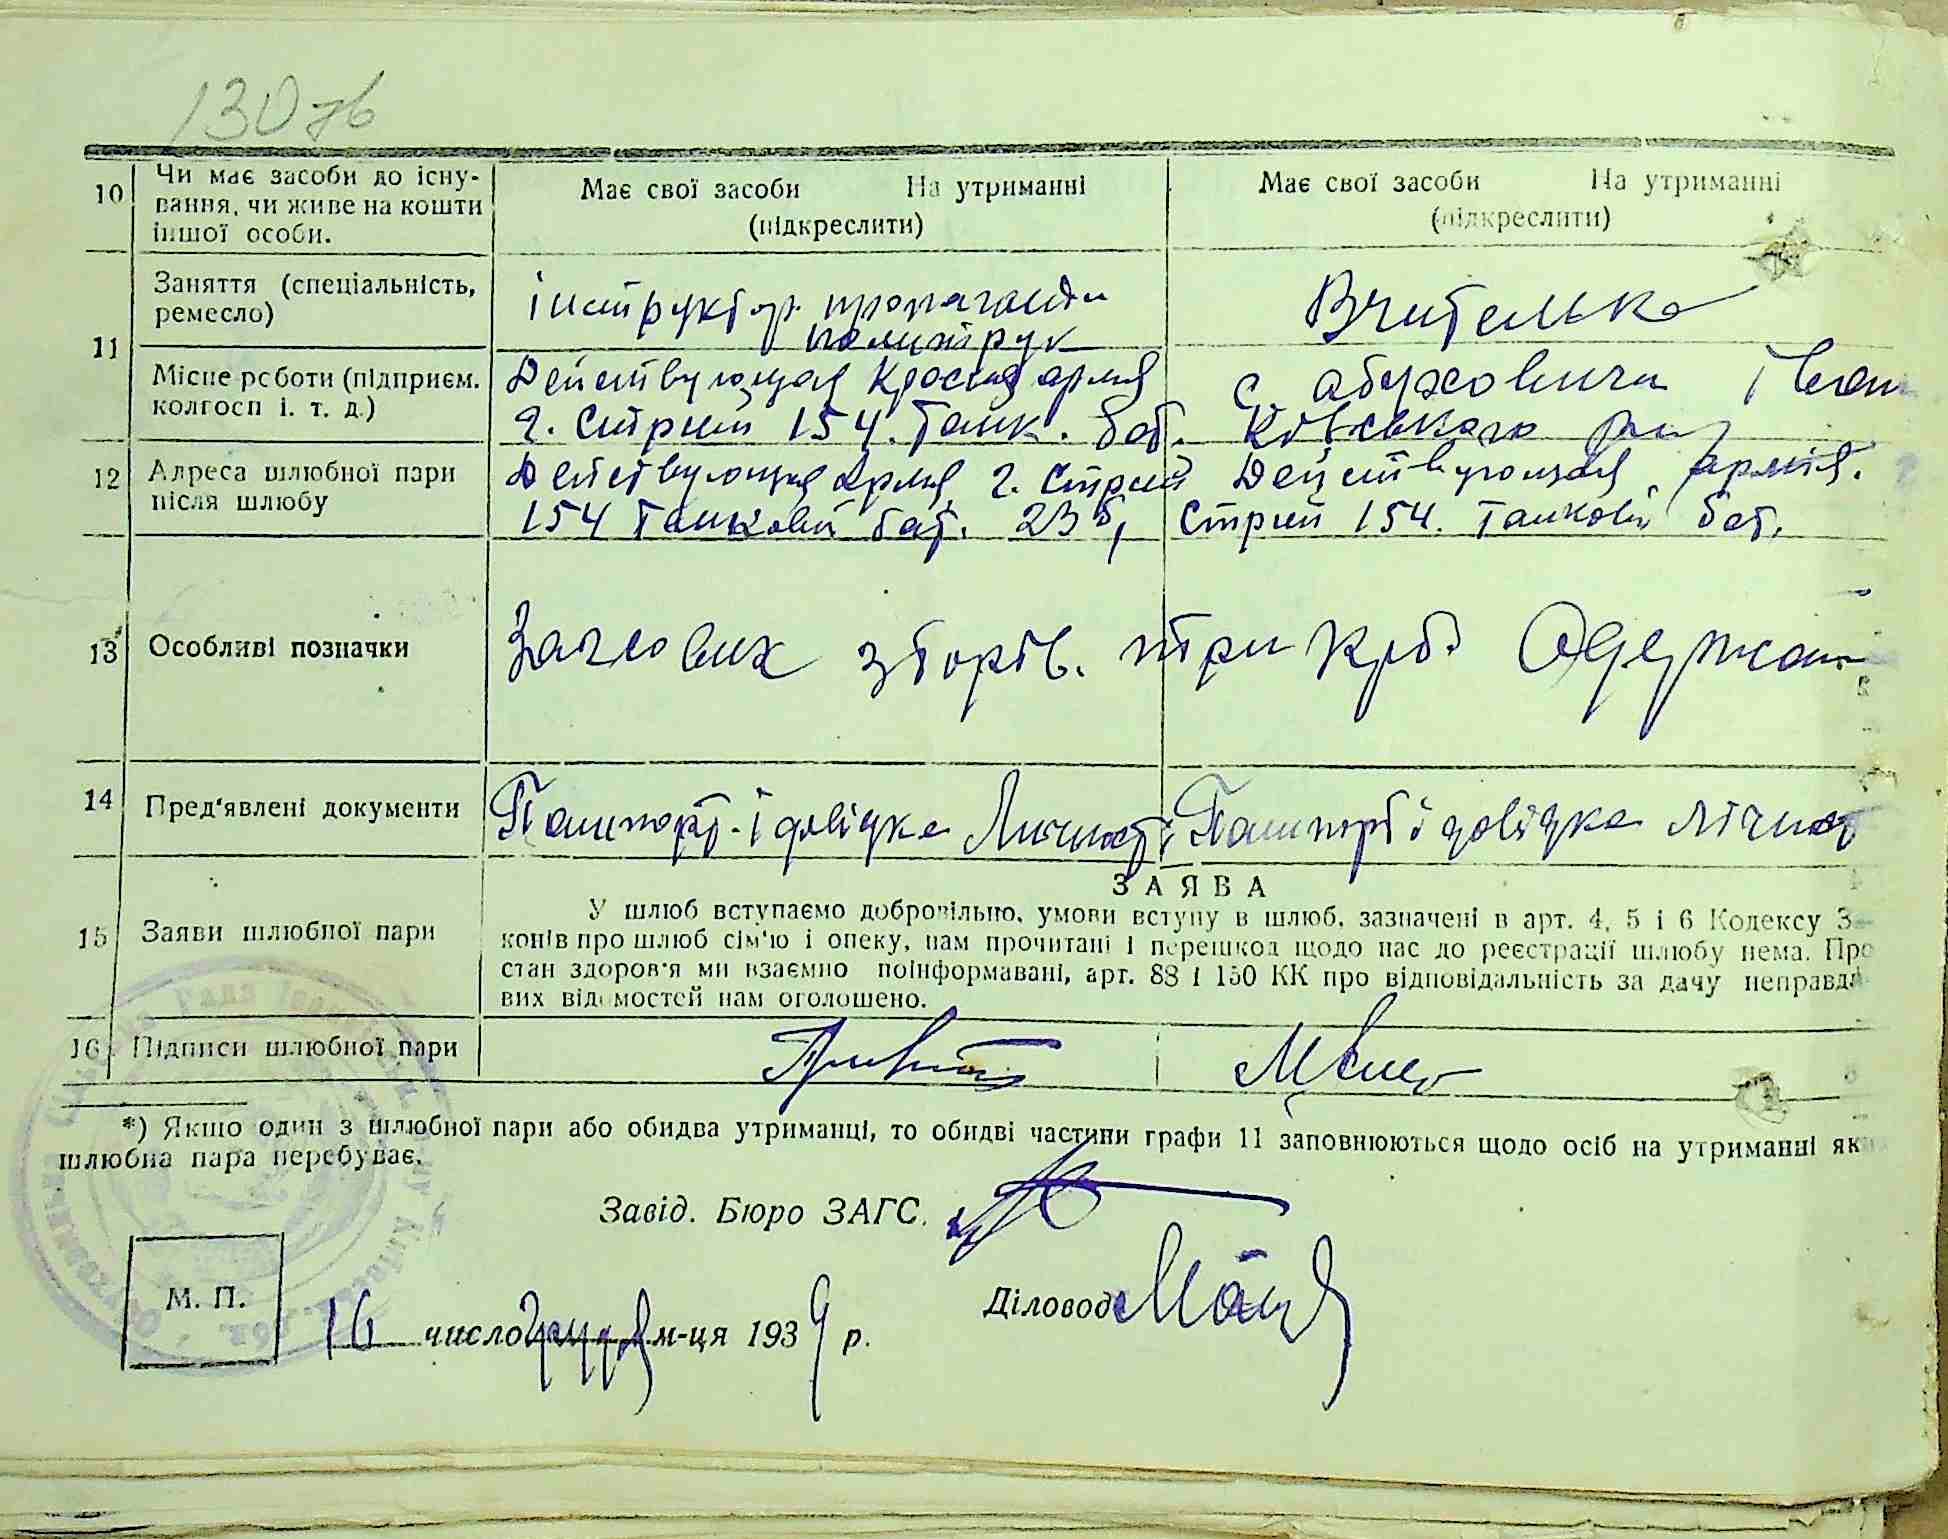 130 зв
10 Чи має засоби до існу-
вання, чи живе на кошти
іншої особи.
Має свої засоби На утриманні
(підкреслити)
Має свої засоби На утриманні
(підкреслити)
11
Заняття (спеціальність,
ремесло)
інструктор пропаганди
политрук
Вчителька
Місце роботи (підприєм.
колгосп і. т. д.)
Действующая Красная армия
г. Стрий 154. Танк. бат.
с. Обуховичи Іван
ківського
12 Адреса шлюбної пари
після шлюбу
Действующая Армия г. Стрий
154 Танковий бат. 23б,
Действующая армія.
Стрий 154. Танковий бат.
13 Особливі позначки
Загсових зборів. три крб. Одержан
14 Пред'явлені документи
Пашпорт і довідка Личност
Пашпорт і довідка лічност
15 Заяви шлюбної пари
ЗАЯВА
У шлюб вступаємо добровільно, умови вступу в шлюб, зазначені в арт. 4, 5 і 6 Кодексу З
конів про шлюб сім'ю і опеку, нам прочитані і перешкод щодо нас до реєстрації шлюбу нема. Про
стан здоров'я ми взаємно поінформавані, арт. 88 і 150 КК про відповідальність за дачу неправд
вих відомостей нам оголошено.
16 Підписи шлюбної пари
*) Якшо один з шлюбної пари або обидва утриманці, то обидві частини графи 11 заповнюються щодо осіб на утриманні як
шлюбна пара перебуває.
Завід. Бюро ЗАГС.
М. П.
Діловод
16 число грудня м-ця 1939 р.